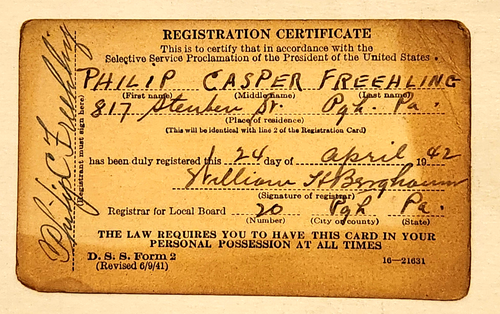 REGISTRATION CERTIFICATE
This is to certify that in accordance with the
Selective Service Proclamation of the President of the United States
PHILIP CASPER FREEHLING
(First name) (Middle name) (Last name)
817 Steuben St. Pgh. Pa.
(Place of residence)
(This will be identical with line 2 of the Registration Card)
has been duly registered this 24 day of April 1942
William H Berghaum
(Signature of registrar)
Registrar for Local Board 20 Pgh Pa.
(Number) (City or county) (State)
THE LAW REQUIRES YOU TO HAVE THIS CARD IN YOUR
PERSONAL POSSESSION AT ALL TIMES
D. S. S. Form 2
(Revised 6/9/41) 16—21631
Philip C Freehling
(Registrant must sign here)